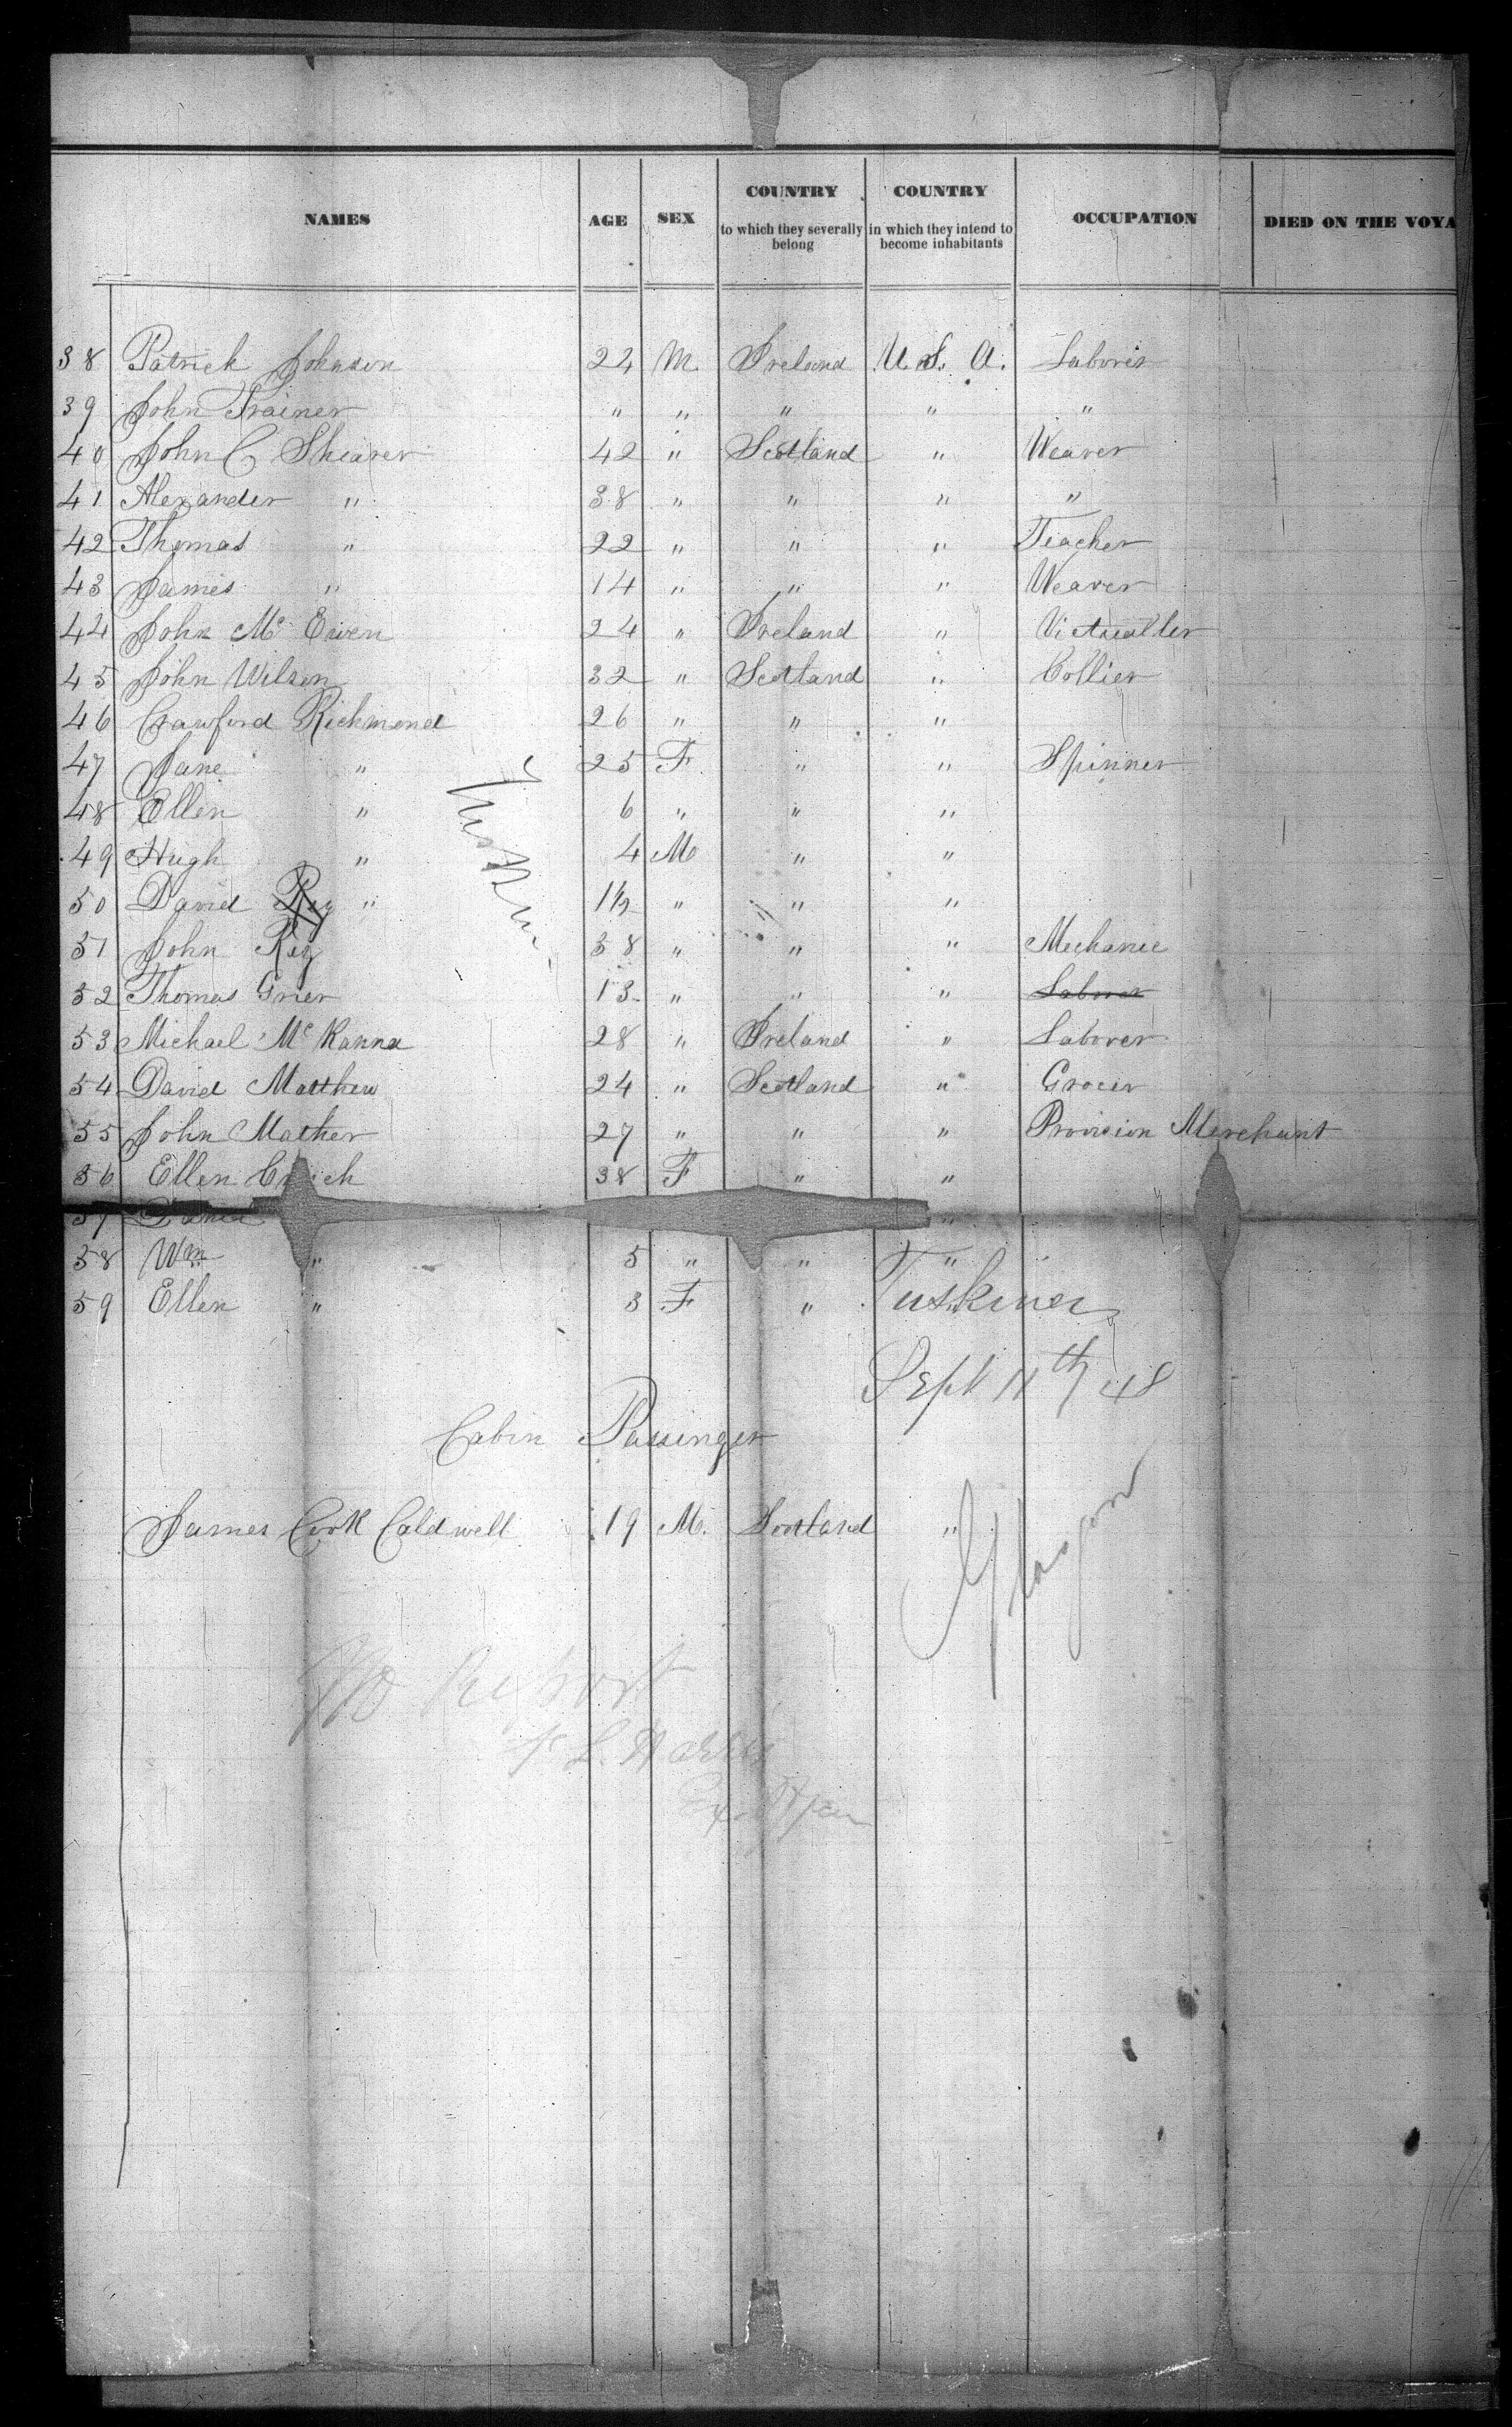 NAMES AGE SEX COUNTRY to which they severally belong COUNTRY in which they intend to become inhabitants OCCUPATION DIED ON THE VOYA
38 Patrick Johnson 24 M. Ireland U. S. A. Laborer
39 John Trainer " " " " "
40 John C Shearer 42 " Scotland " Weaver
41 Alexander " 38 " " " "
42 Thomas " 22 " " " Teacher
43 James " 14 " " " Weaver
44 John Mc Ewen 24 " Ireland " Victualler
45 John Wilson 32 " Scotland " Collier
46 Crawford Richmond 26 " " "
47 Jane " 25 F " " Spinner
48 Ellen " 6 " " "
49 Hugh " 4 M " "
50 David " 1½ " " "
51 John 38 " " " Mechanic
52 Thomas Grier 13 " " " Laborer
53 Michael Mc Kanna 28 " Ireland " Laborer
54 David Matthew 24 " Scotland " Grocer
55 John Mather 27 " " " Provision Merchant
56 Ellen 38 F " "
57 "
58 Wm " 5 " " "
59 Ellen " 3 F "
Sept 11th / 48
Cabin Passinger
James Cook Caldwell 19 M. Scotland "
Glasgow
Report